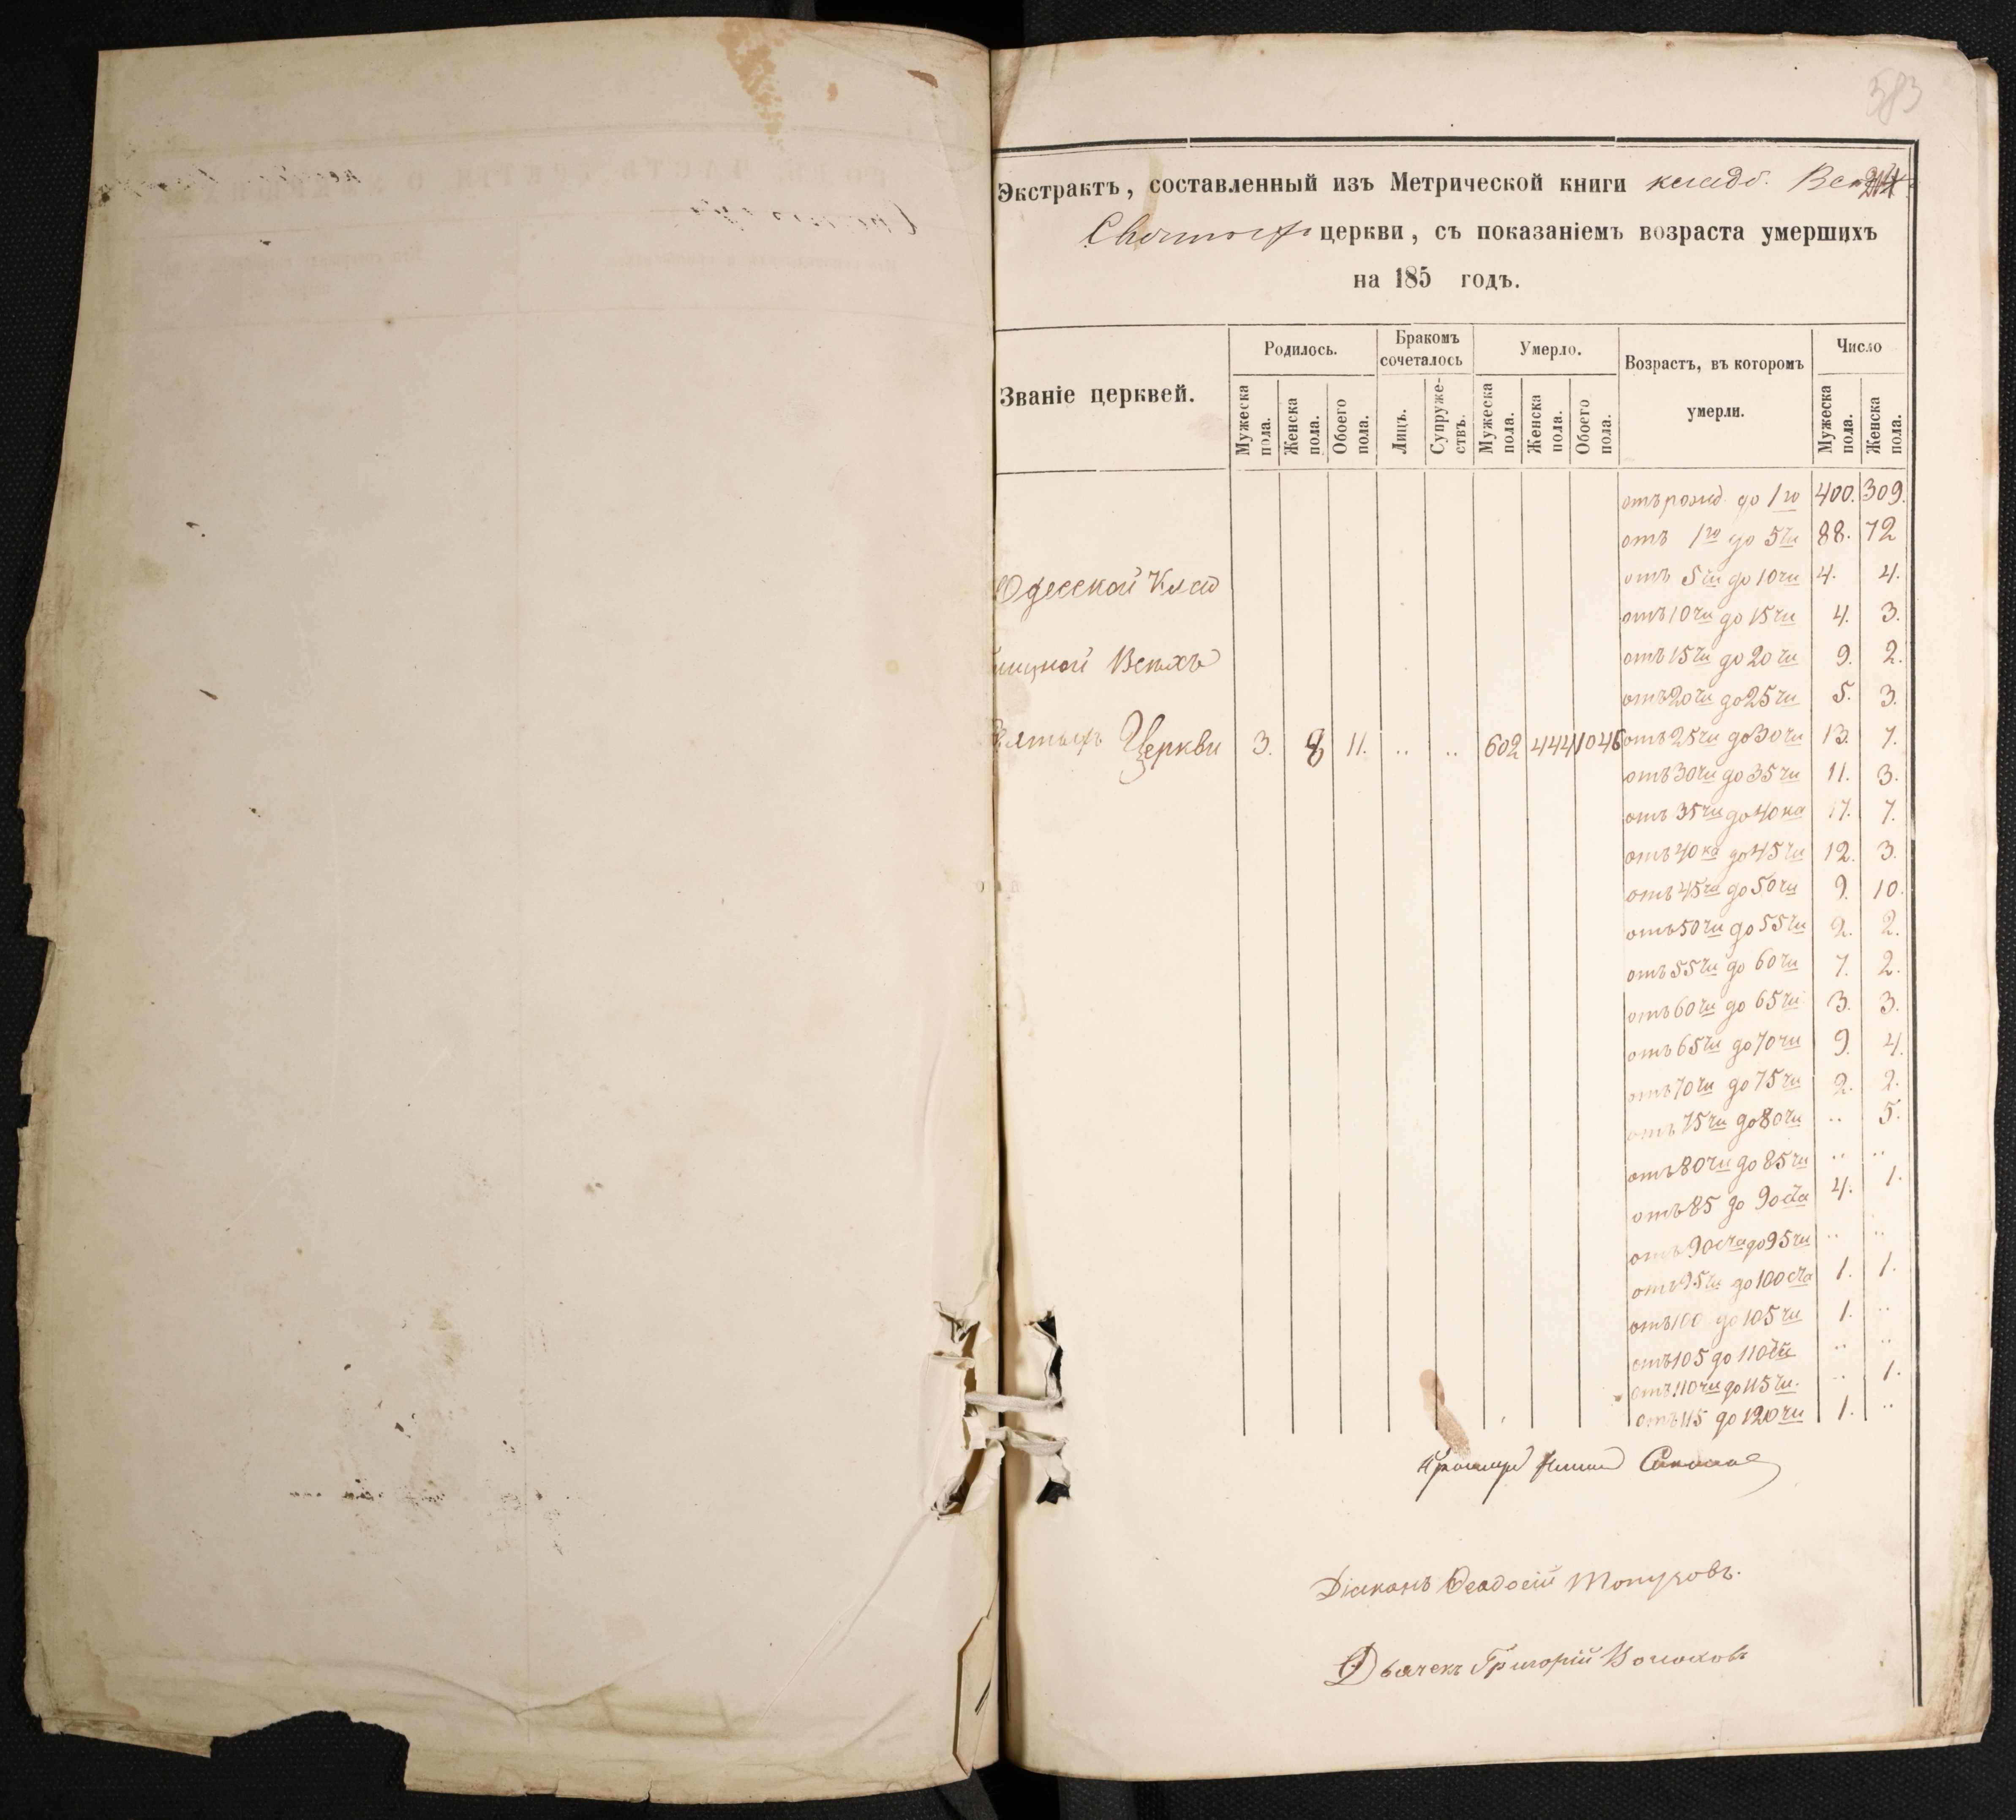 583
Экстрактъ, составленный изъ Метрической книги кладб.
церкви, съ показаніемъ возраста умершихъ
на 185 годъ.
Званіе церквей.
Родилось.
Бракомъ сочеталось
Умерло.
Возрастъ, въ которомъ умерли.
Число
Мужеска пола.
Женска пола.
Обоего пола.
Лицъ.
Супружествъ.
Мужеска пола.
Женска пола.
Обоего пола.
Мужеска пола.
Женска пола.
Одесской Клад
бищной Всѣхъ
Святыхъ Церкви 3. 8 11. .. .. 602 444 1046
отъ рожд. до 1го 400. 309.
отъ 1го до 5ти 88. 72
отъ 5ти до 10ти 4. 4.
отъ 10ти до 15ти 4. 3.
отъ 15ти до 20ти 9. 2.
отъ 20ти до 25ти 5. 3.
отъ 25ти до 30ти 13. 7.
отъ 30ти до 35ти 11. 3.
отъ 35ти до 40ка 17. 7.
отъ 40ка до 45ти 12. 3.
отъ 45ти до 50ти 9. 10.
отъ 50ти до 55ти 2. 2.
отъ 55ти до 60ти 7. 2.
отъ 60ти до 65ти 3. 3.
отъ 65ти до 70ти 9. 4.
отъ 70ти до 75ти 2. 2.
отъ 75ти до 80ти .. 5.
отъ 80ти до 85ти .. ..
отъ 85 до 90ста 4. 1.
отъ 90ста до 95ти .. ..
отъ 95ти до 100ста 1. 1.
отъ 100 до 105ти 1. ..
отъ 105 до 110ти .. ..
отъ 110ти до 115ти. .. 1.
отъ 115 до 120ти 1. ..
Діаконъ Ѳеодосій
Дьячекъ Григорій